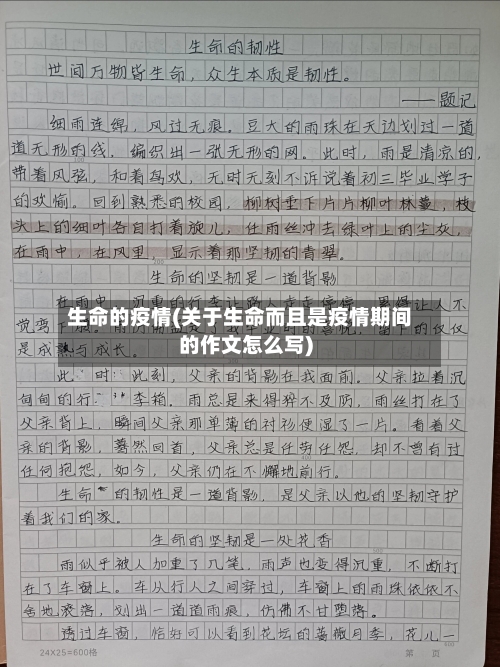 生命的韧性
世间万物皆生命，众生本质是韧性。
——题记
细雨连绵，风过无痕。豆大的雨珠在天边划过一道
道无形的线，编织出一张无形的网。此时，雨是清凉的，
带着风弦，和着鸟欢，无时无刻不诉说着初三毕业学子
的欢愉。回到熟悉的校园，柳树垂下片片柳叶林蔓，枝
头上的细叶各自打着旋儿，任雨丝冲去绿叶上的尘灰，
在雨中，在风里，显示着那坚韧的青翠。
生命的坚韧是一道背影
生命的疫情(关于生命而且是疫情期间
的作文怎么写)
是成熟与成长。
此时此刻，父亲的背影在我面前。父亲拉着沉
甸甸的行李箱。雨总是来得猝不及防，雨丝打在了
父亲背上，瞬间父亲那单薄的衬衫便湿了一片。看着父
亲的背影，蓦然回首，父亲总是任劳任怨，却不曾有过
任何抱怨，如今，父亲仍在不懈地前行。
生命的韧性是一道背影，是父亲以他的坚韧守护
着我们的家。
生命的坚韧是一处花香
雨似乎被人加重了几笔，雨声也变得沉重，不断打
在了车窗上。车从行人之间穿过，车窗上的雨珠依依不
舍地滚落，划出一道道雨痕，仿佛不甘堕落。
透过车窗，恰好可以看到花坛的蔷薇月季，花儿一
24×25=600格 第 页